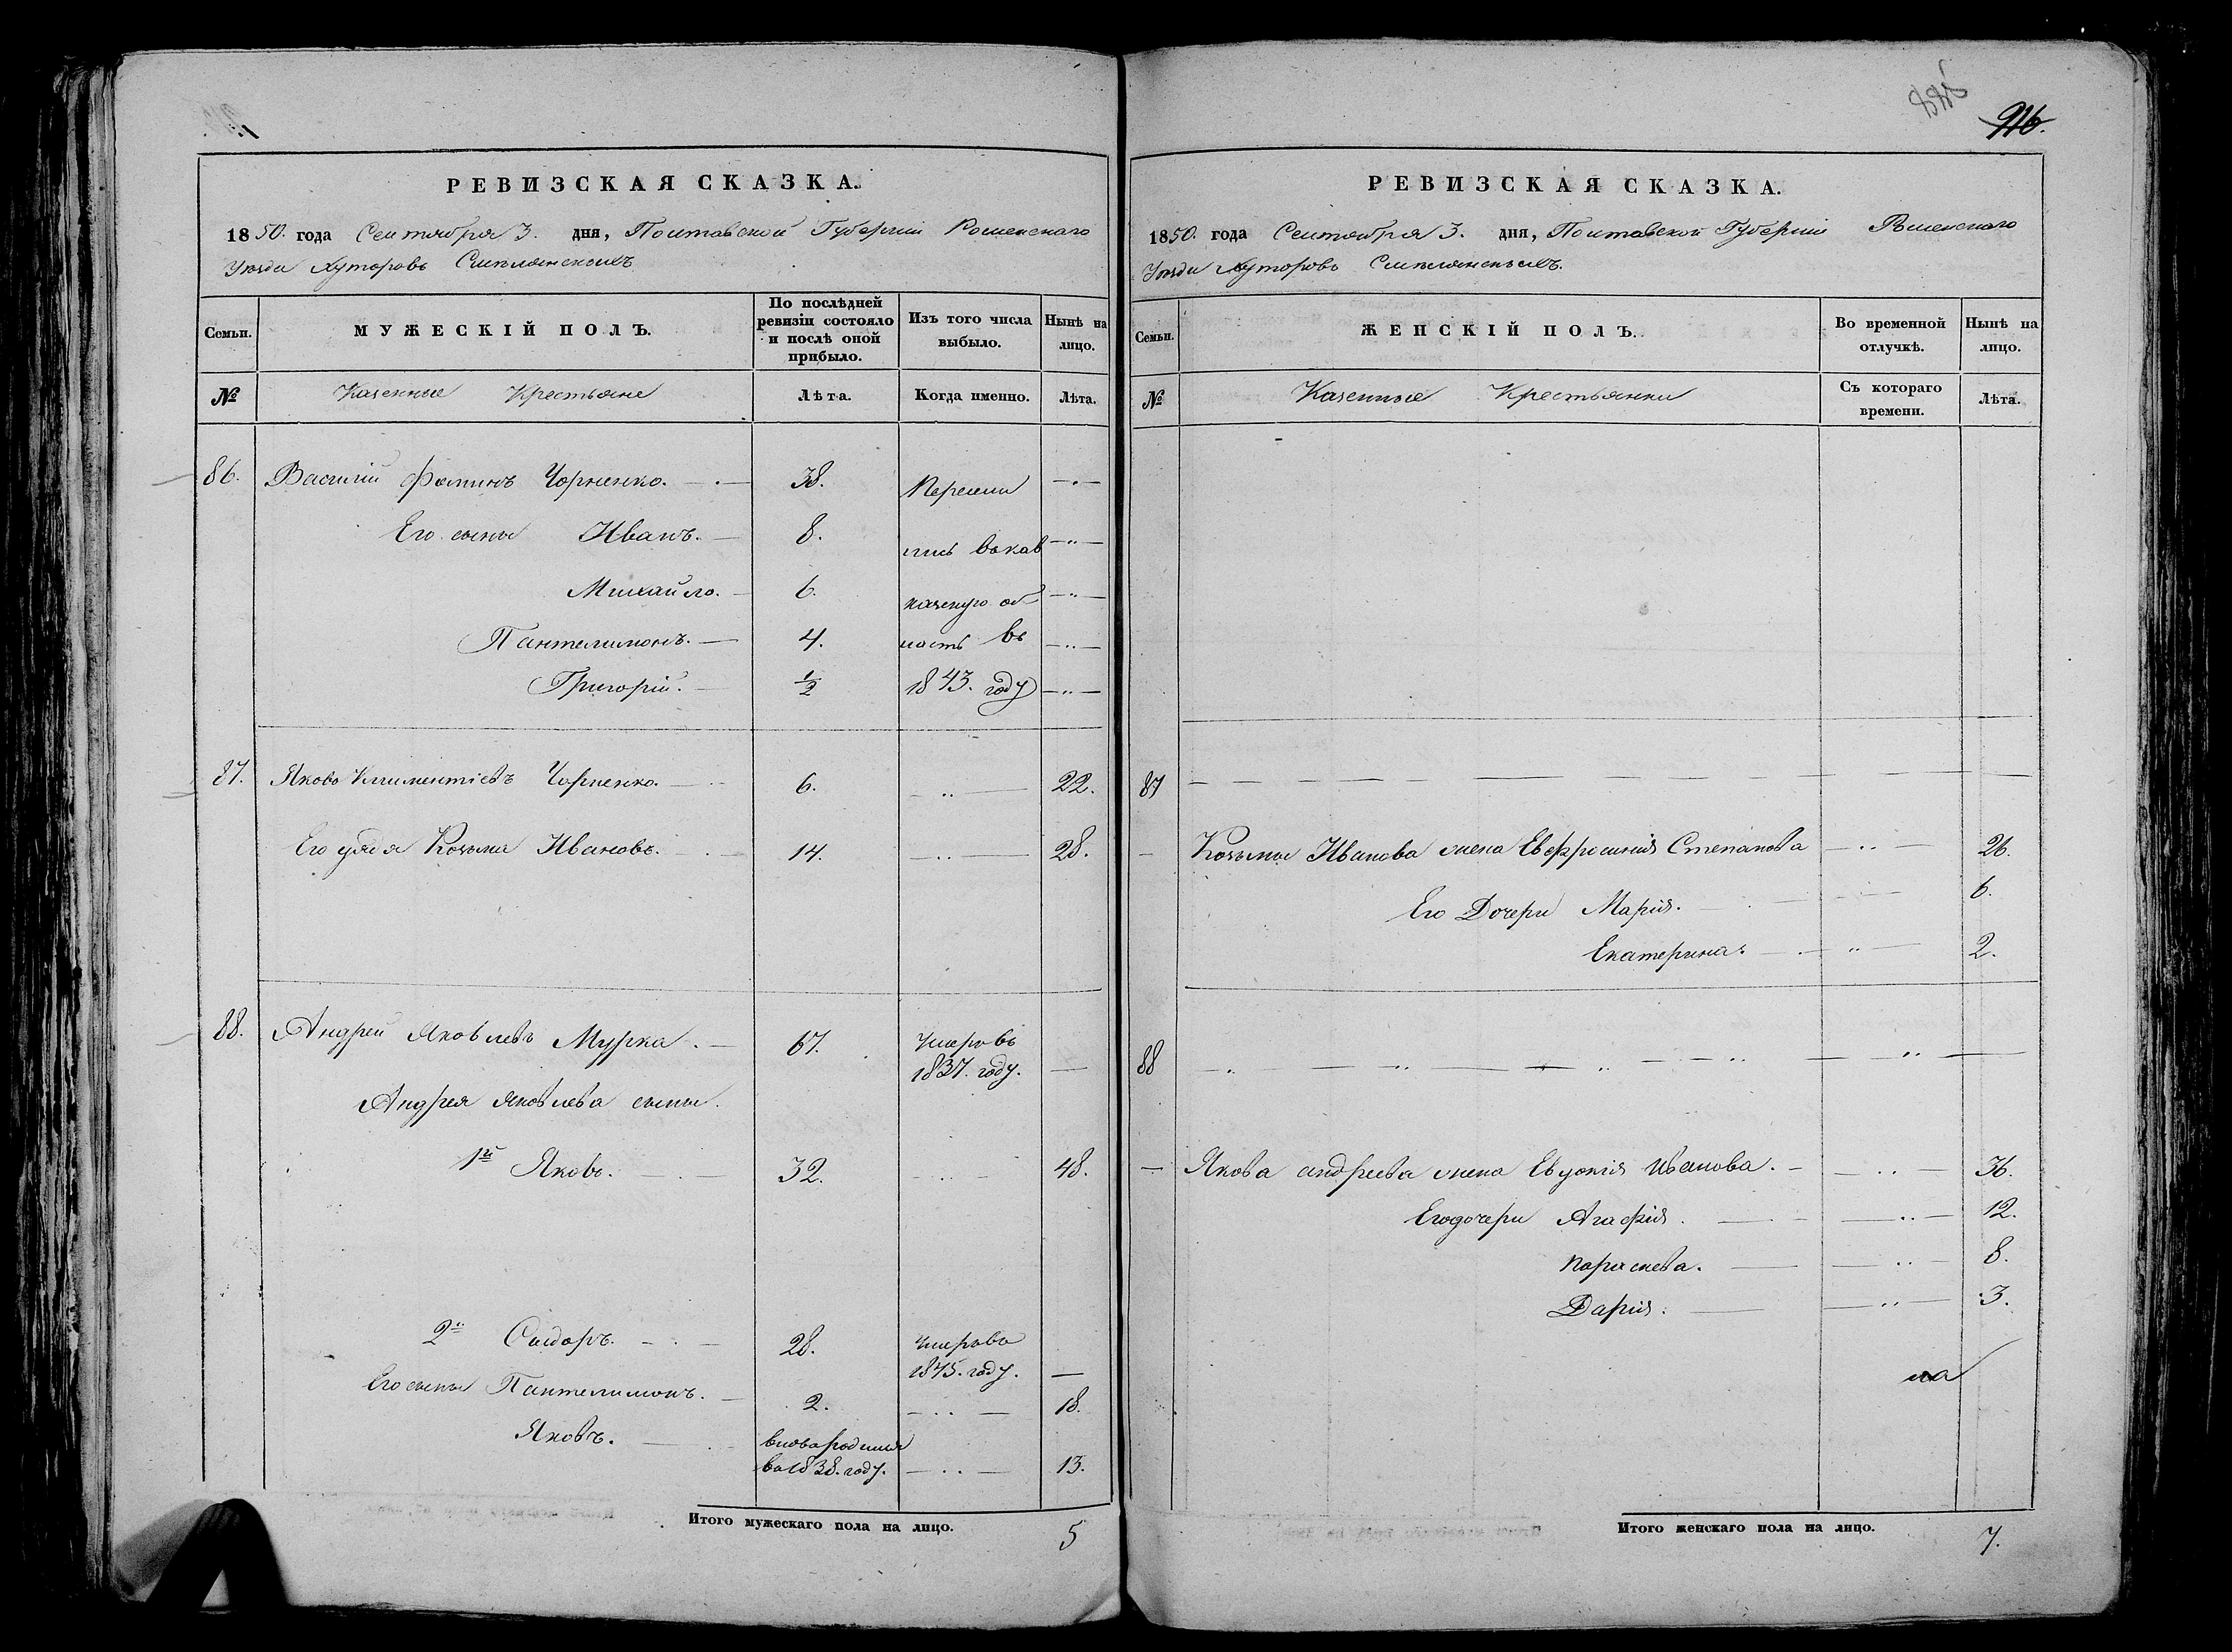 РЕВИЗСКАЯ СКАЗКА.
1850. года Сентября 3. дня, Полтавской Губернии Роменскаго
Уезда Хуторовъ Смелянскихъ
Семьи. МУЖЕСКІЙ ПОЛЪ. По послѣдней ревизіи состояло и послѣ оной прибыло. Изъ того числа выбыло. Нынѣ на лицо.
№ Казенные Крестьяне Лѣта. Когда именно. Лѣта.
86. Василій Фоминъ Чорненко. 38. Пересели
Его сыны Иванъ. 8. лись вокав
Михайло. 6. казскую об
Пантелимонъ. 4. ласть въ
Григорій. 1/2 1843. году
87. Яковъ Климентіевъ Чорненко. 6. 22.
Его дядя Козьма Ивановъ. 14. 28.
88. Андрей Яковлевъ Мурка. 67. Умеръ въ 1837. году.
Андрея Яковлева сыны.
1й Яковъ. 32. 48.
2й Сыдоръ. 28. Умеръ въ 1845. году.
Его сыны Пантелимонъ. 2. 18.
Яковъ. вновь родился въ 1838. году. 13.
Итого мужескаго пола на лицо. 5
916.
РЕВИЗСКАЯ СКАЗКА.
1850. года Сентября 3. дня, Полтавской Губернии Роменскаго
Уезда Хуторовъ Смелянскихъ.
Семьи. ЖЕНСКІЙ ПОЛЪ. Во временной отлучкѣ. Нынѣ на лицо.
№ Казенные Крестьянки Съ котораго времени. Лѣта.
87
Козьмы Иванова жена Евфросинія Степанова 26.
Его Дочери Марія. 6.
Екатерина. 2.
88
Якова андреева жена Евдокія Иванова. 36.
Его дочери Агафія. 12.
Параскева. 8.
Дарія. 3.
Итого женскаго пола на лицо. 7.